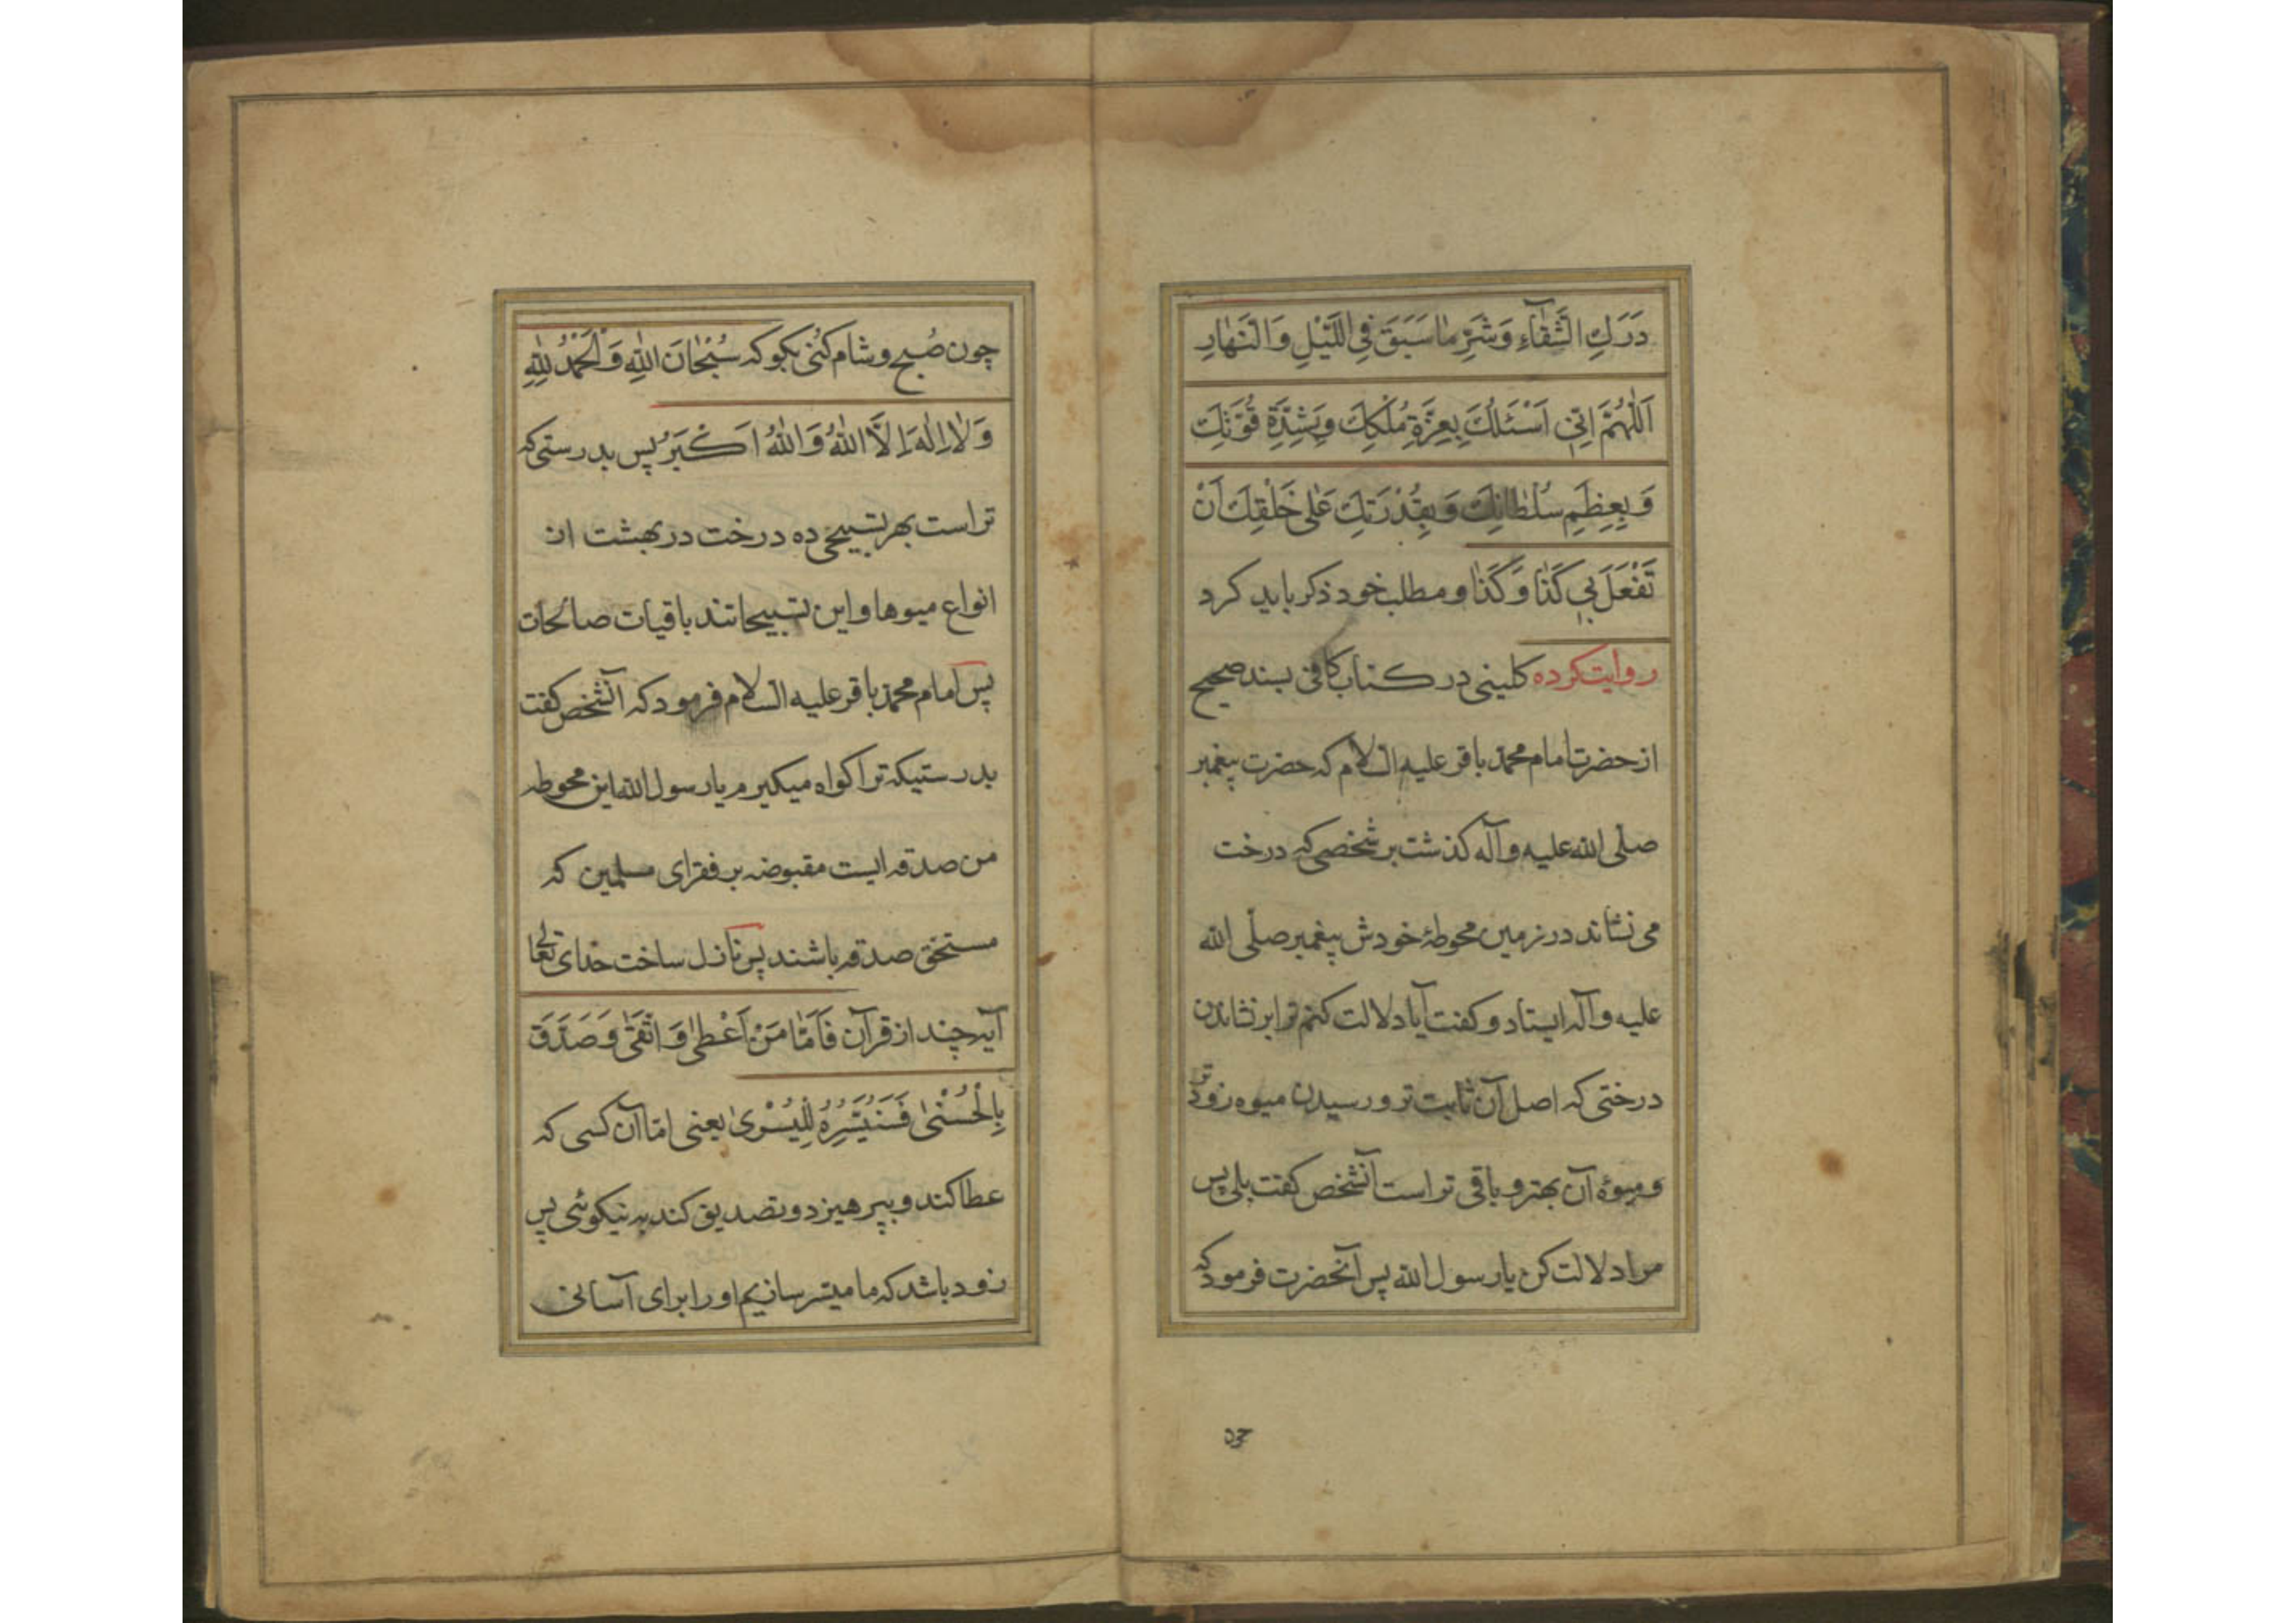 دَرَكِ الشَّقٰآءِ وَشَرِّ مٰا سَبَقَ فِى اللَّيْلِ وَالنَّهٰارِ
اَللّٰهُمَّ اِنّىٖ اَسْئَلُكَ بِعِزَّةِ مُلْكِكَ وَبِشِدَّةِ قُوَّتِكَ
وَبِعِظَمِ سُلْطٰانِكَ وَبِقُدْرَتِكَ عَلٰى خَلْقِكَ اَنْ
تَفْعَلَ بىٖ كَذٰا وَكَذٰا و مطلب خود ذكر بايد كرد
روايت كرده كلينى در كتاب كافى بسند صحيح
از حضرت امام محمّد باقر عليه السّلام كه حضرت پيغمبر
صلّى الله عليه و آله كذشت بر شخصى كه درخت
مى نشاند در زمين محوطهٔ خودش پيغمبر صلّى الله
عليه و آله ايستاد و كفت آيا دلالت كنم ترا بر نشاندن
درختى كه اصل آن ثابت تر و رسيدن ميوه زودتر
و ميوهٔ آن بهتر و باقى تر است آنشخص كفت بلى پس
مرا دلالت كن يا رسول الله پس آنحضرت فرمود كه
چون
چون صُبح و شام كُنى بكو كه سُبْحٰانَ اللّٰهِ وَالْحَمْدُ لِلّٰهِ
وَلٰا اِلٰهَ اِلَّا اللّٰهُ وَاللّٰهُ اَكْبَرُ پس بدرستى كه
تراست بهر تسبيحى ده درخت در بهشت از
انواع ميوها و اين تسبيحاتند باقيات صالحات
پس امام محمّد باقر عليه السّلام فرمود كه آنشخص كفت
بدرستيكه ترا كواه ميكيرم يا رسول الله اين محوطه
من صدقه ايست مقبوضه بر فقراى مسلمين كه
مستحقّ صدقه باشند پس نازل ساخت خداى تعالى
آيه چند از قرآن فَاَمّٰا مَنْ اَعْطٰى وَاتَّقٰى وَصَدَّقَ
بِالْحُسْنٰى فَسَنُيَسِّرُهُ لِلْيُسْرٰى يعنى امّا آن كسى كه
عطا كند و بپرهيزد و تصديق كند به نيكوئى پس
زود باشد كه ما ميسّر سازيم او را براى آسانى